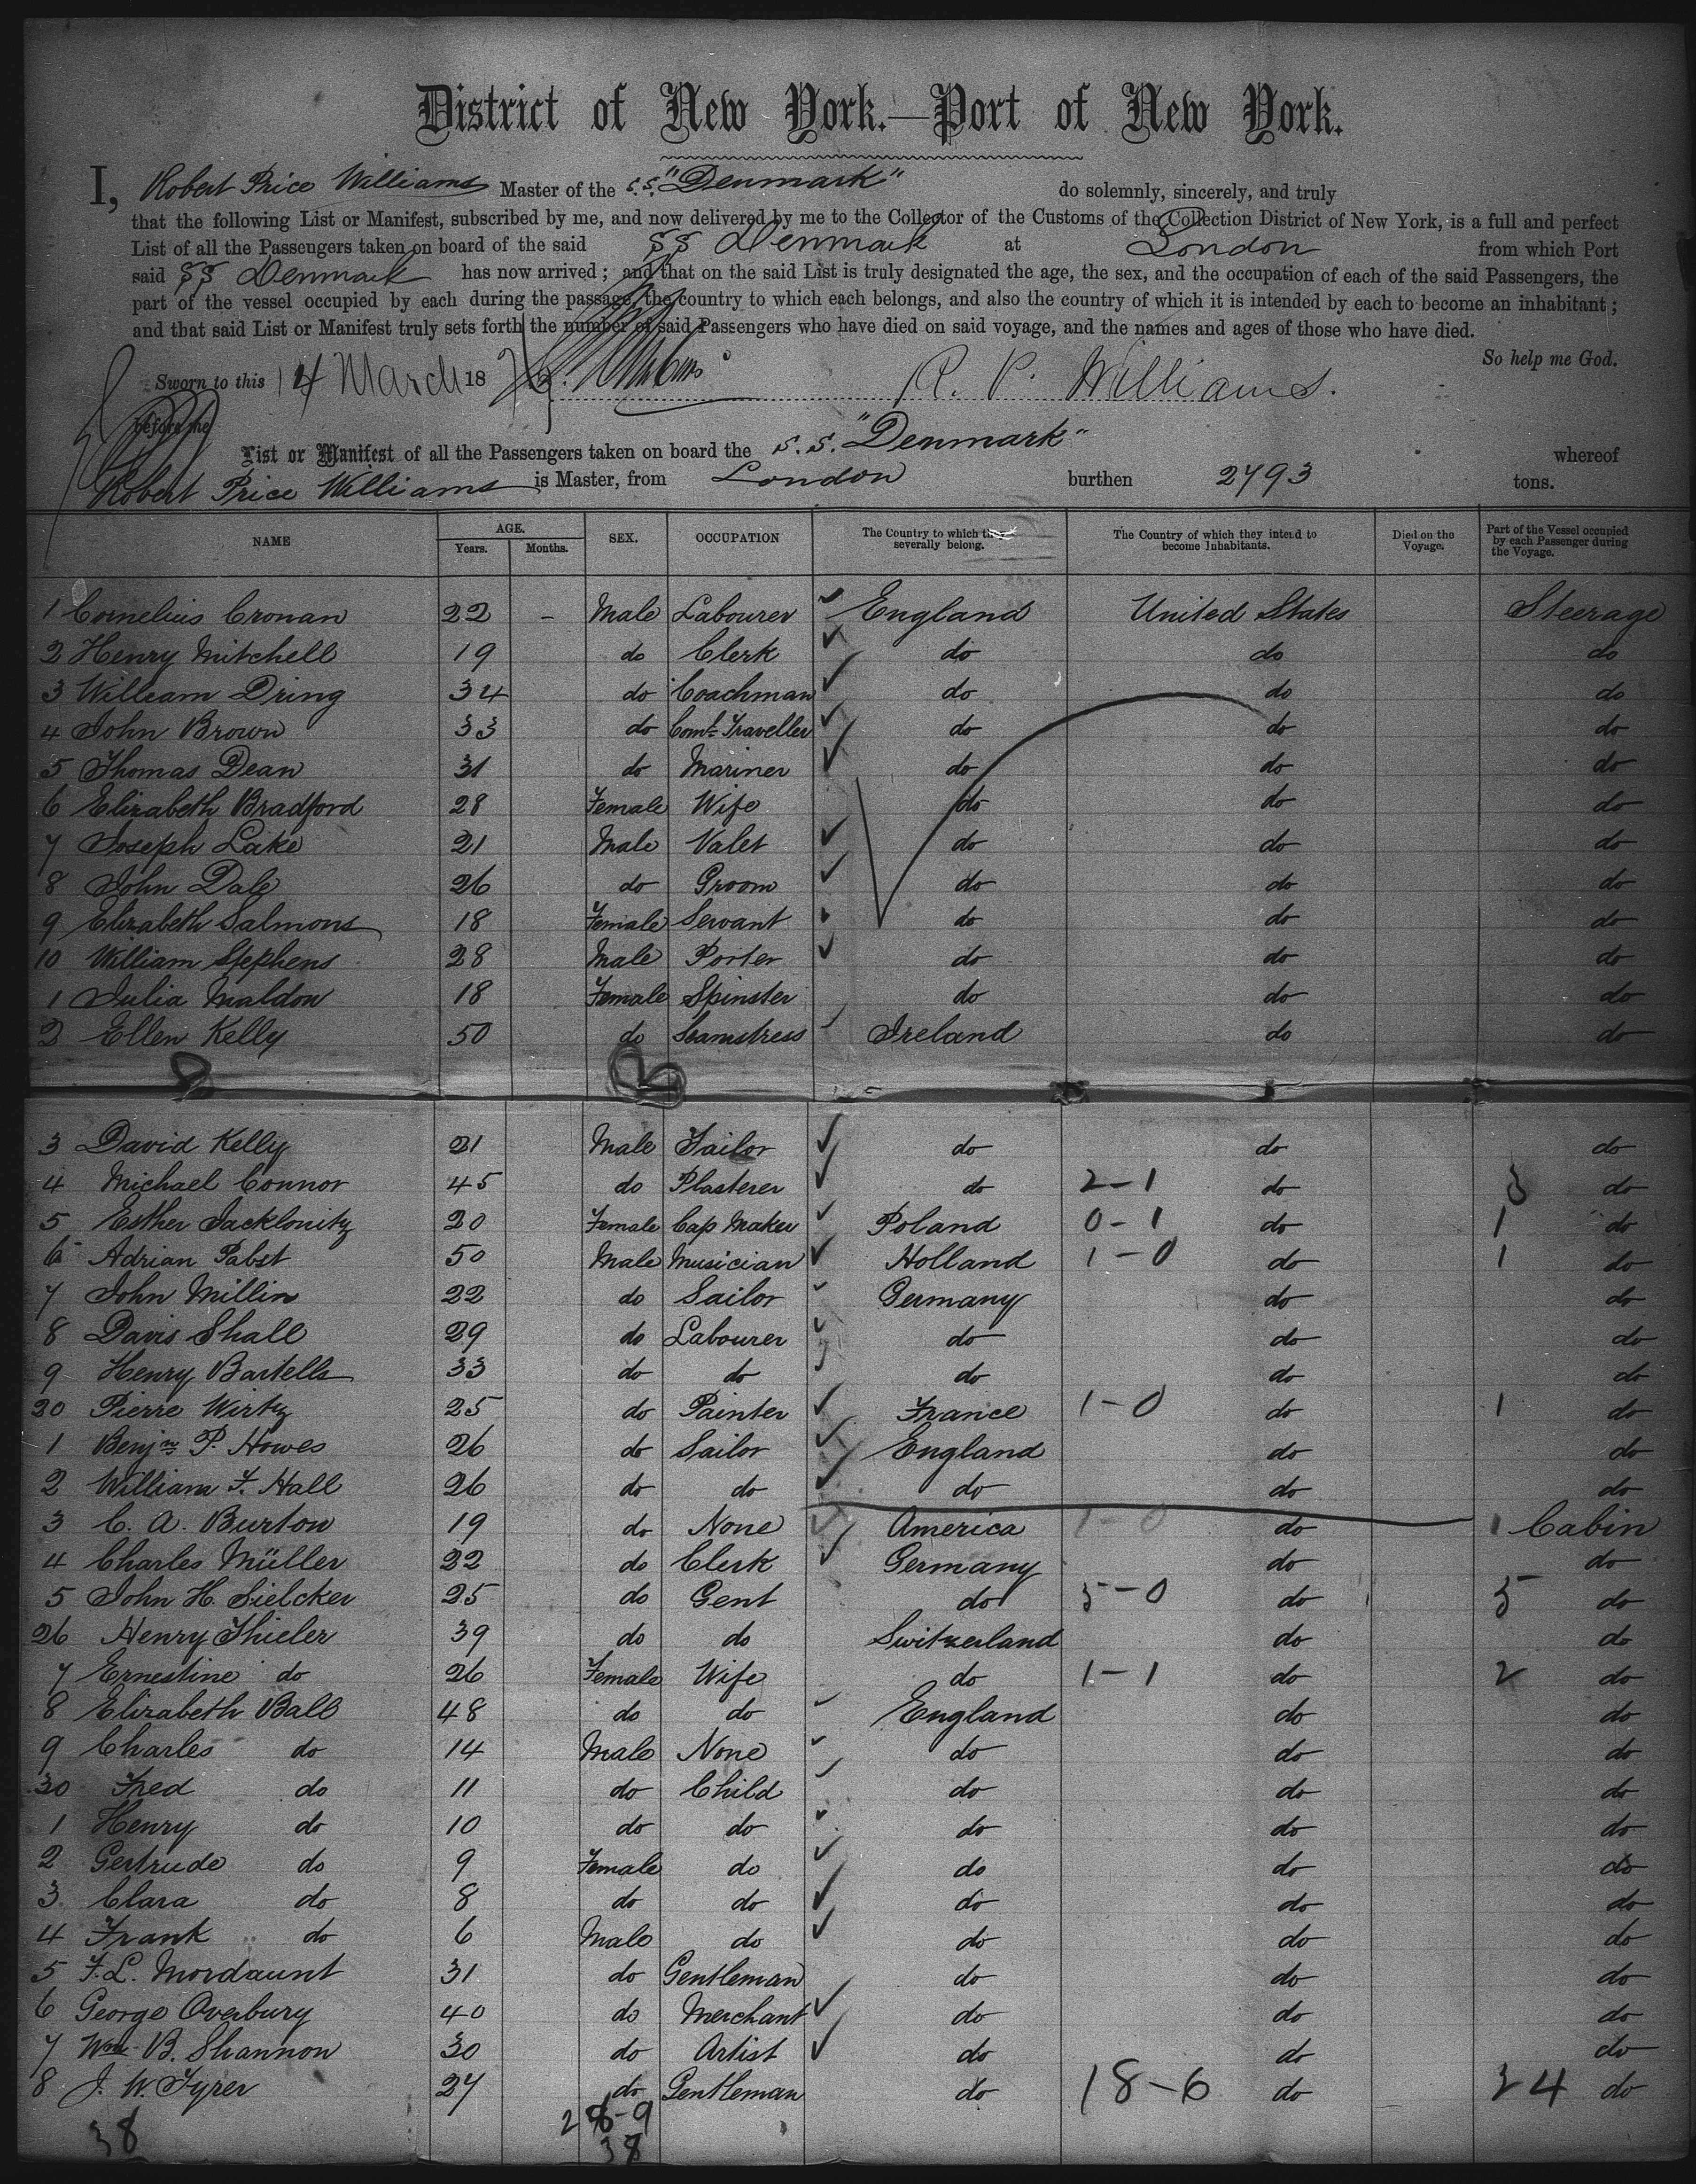 District of New York.—Port of New York.
I, Robert Price Williams Master of the S.S. "Denmark" do solemnly, sincerely, and truly
that the following List or Manifest, subscribed by me, and now delivered by me to the Collector of the Customs of the Collection District of New York, is a full and perfect
List of all the Passengers taken on board of the said SS Denmark at London from which Port
said SS Denmark has now arrived; and that on the said List is truly designated the age, the sex, and the occupation of each of the said Passengers, the
part of the vessel occupied by each during the passage, the country to which each belongs, and also the country of which it is intended by each to become an inhabitant;
and that said List or Manifest truly sets forth the number of said Passengers who have died on said voyage, and the names and ages of those who have died.
So help me God.
Sworn to this 14 March 18 R. P. Williams.
before me
List or Manifest of all the Passengers taken on board the S.S. "Denmark" whereof
Robert Price Williams is Master, from London burthen 2793 tons.
NAME AGE. Years. Months. SEX. OCCUPATION The Country to which they severally belong. The Country of which they intend to become Inhabitants. Died on the Voyage. Part of the Vessel occupied by each Passenger during the Voyage.
1 Cornelius Cronan 22 – Male Labourer England United States Steerage
2 Henry Mitchell 19 do Clerk do do do
3 William Dring 34 do Coachman do do do
4 John Brown 33 do Coml. Traveller do do do
5 Thomas Dean 31 do Mariner do do do
6 Elizabeth Bradford 28 Female Wife do do do
7 Joseph Lake 21 Male Valet do do do
8 John Dale 26 do Groom do do do
9 Elizabeth Salmons 18 Female Servant do do do
10 William Stephens 28 Male Porter do do do
1 Julia Maldon 18 Female Spinster do do do
2 Ellen Kelly 50 do Seamstress Ireland do do
3 David Kelly 21 Male Tailor do do do
4 Michael Connor 45 do Plasterer do 2-1 do 3 do
5 Esther Jacklonitz 20 Female Cap Maker Poland 0-1 do 1 do
6 Adrian Pabst 50 Male Musician Holland 1-0 do 1 do
7 John Millin 22 do Sailor Germany do do
8 Davis Shall 29 do Labourer do do do
9 Henry Bartells 33 do do do do do
20 Pierre Wirtz 25 do Painter France 1-0 do 1 do
1 Benjn P. Howes 26 do Sailor England do do
2 William F. Hall 26 do do do do do
3 C. A. Burton 19 do None America 1-0 do 1 Cabin
4 Charles Müller 22 do Clerk Germany do do
5 John H. Sielcker 25 do Gent do 5-0 do 5 do
26 Henry Thieler 39 do do Switzerland do do
7 Ernestine do 26 Female Wife do 1-1 do 2 do
8 Elizabeth Ball 48 do do England do do
9 Charles do 14 Male None do do do
30 Fred do 11 do Child do do do
1 Henry do 10 do do do do do
2 Gertrude do 9 Female do do do do
3 Clara do 8 do do do do do
4 Frank do 6 Male do do do do
5 F. L. Mordaunt 31 do Gentleman do do do
6 George Overbury 40 do Merchant do do do
7 Wm. B. Shannon 30 do Artist do do do
8 J. W. Tyrer 27 do Gentleman do 18-6 do 24 do
38 28-9
38